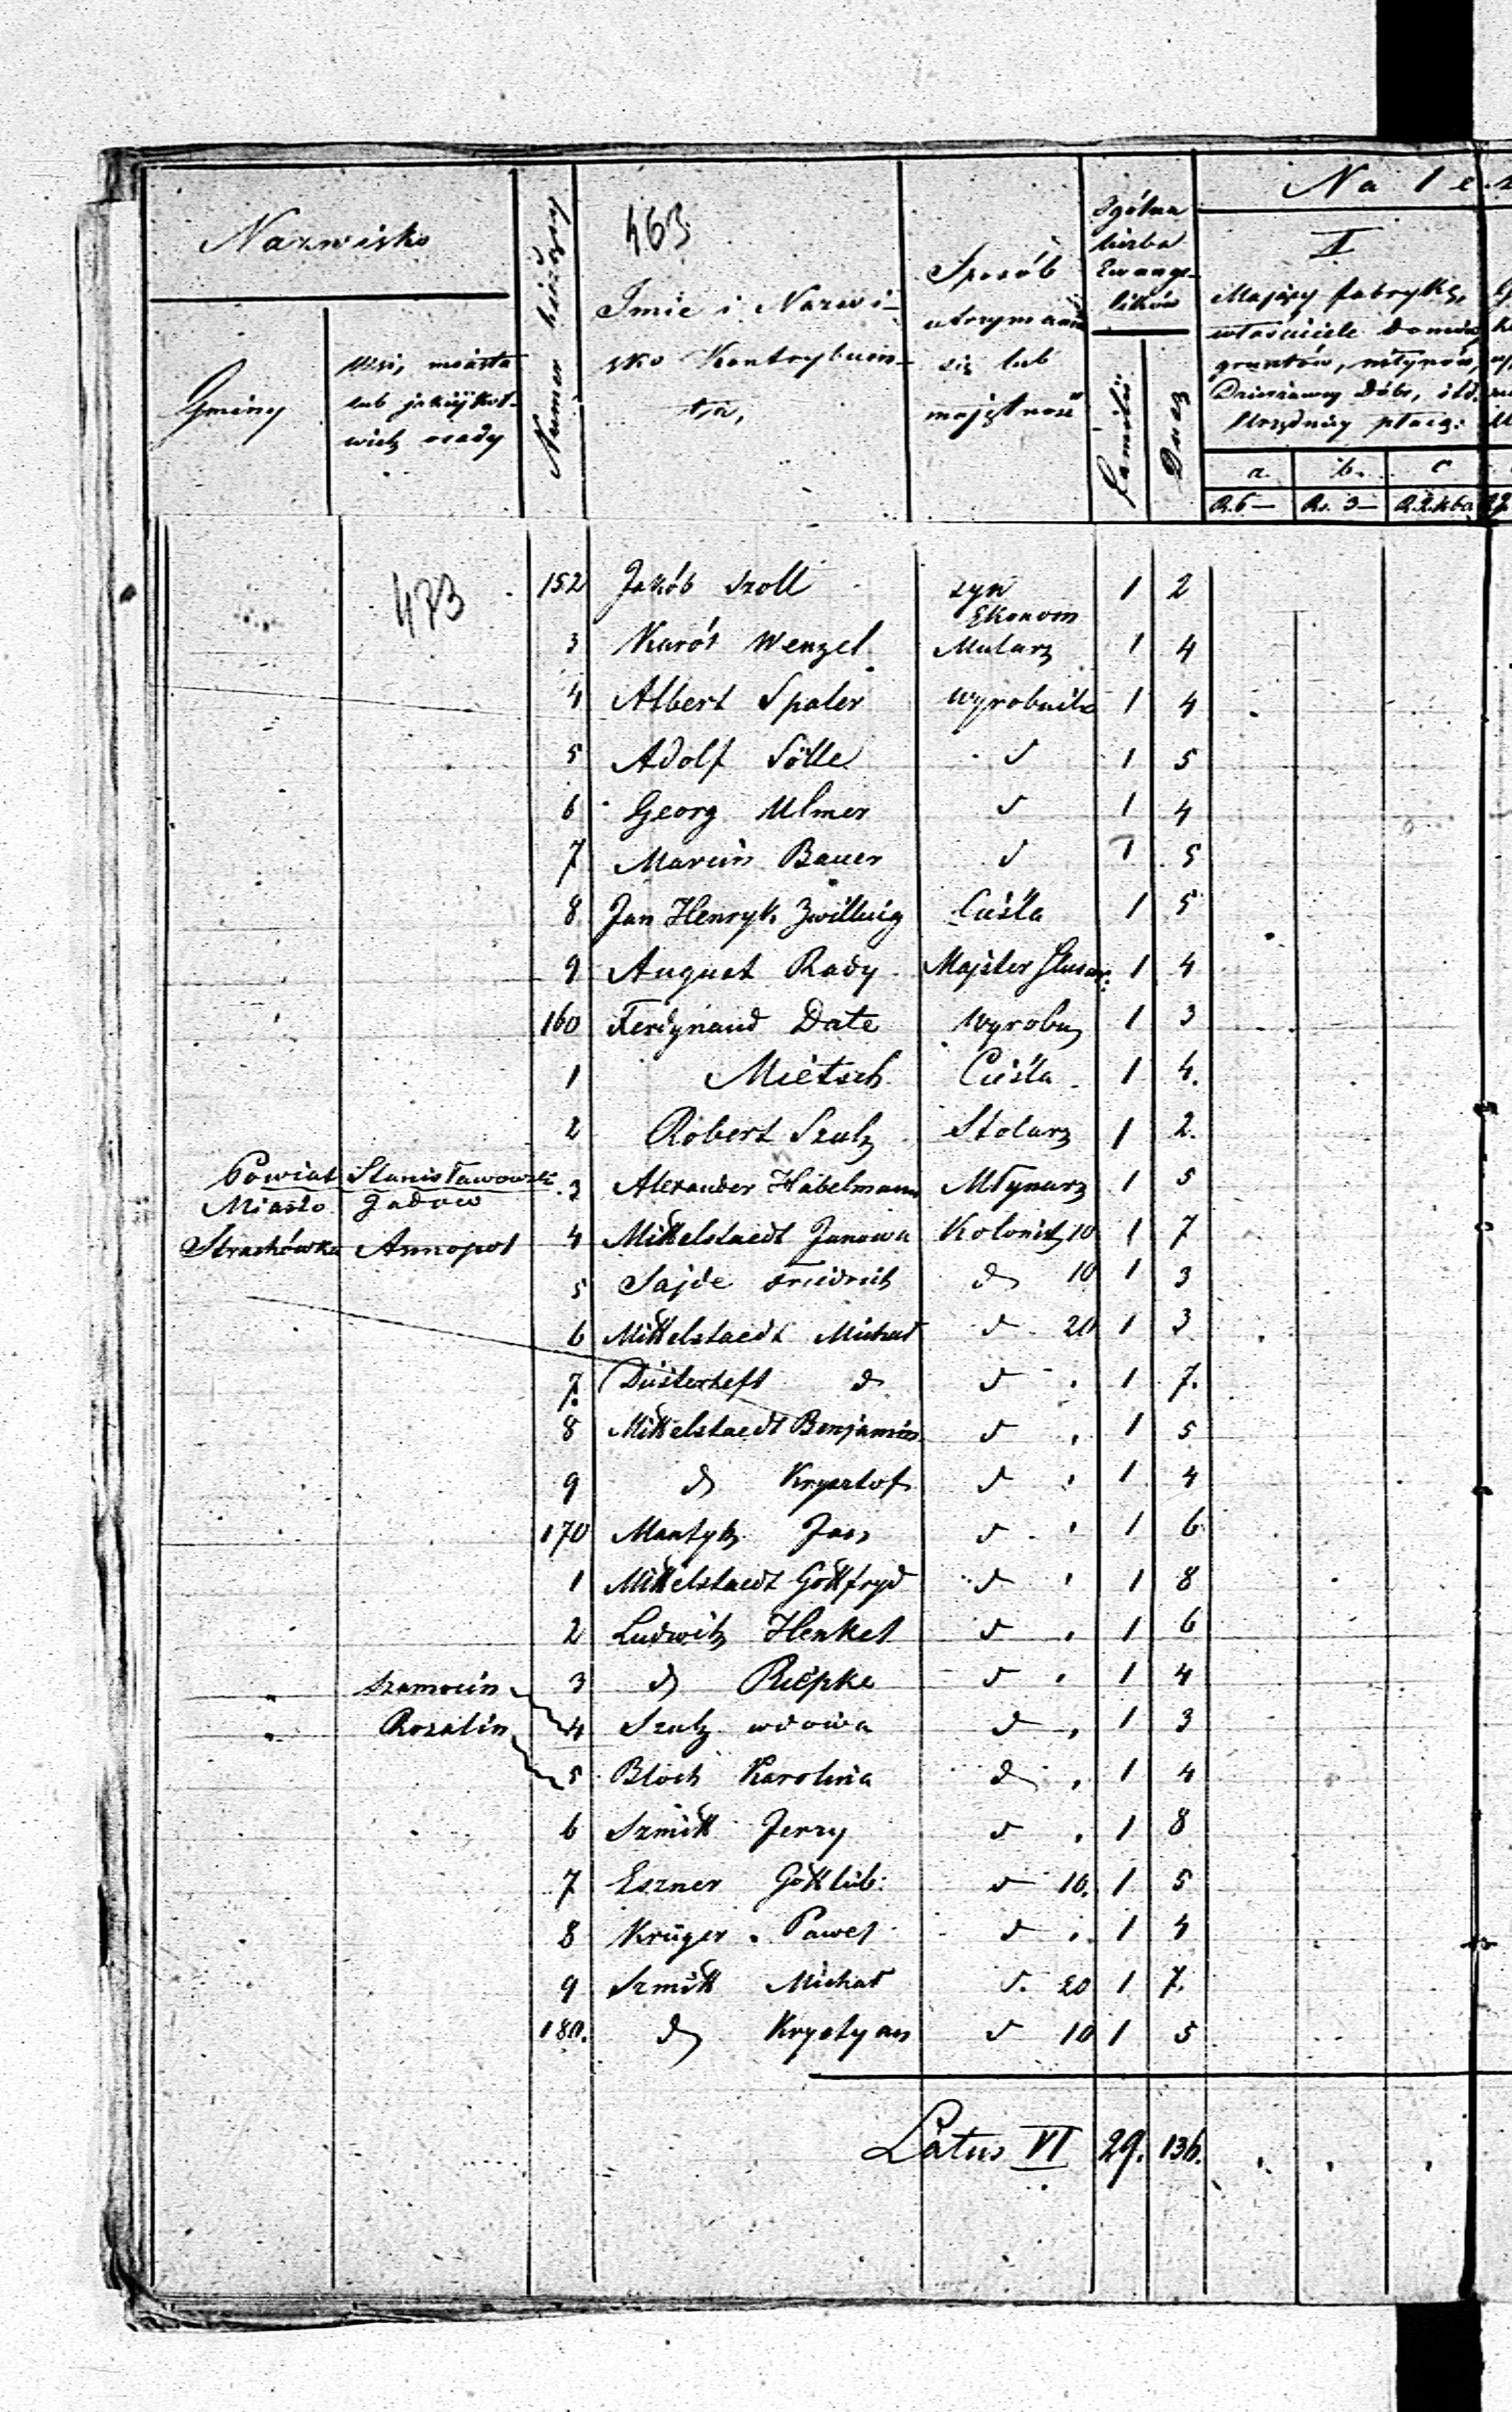 Nazwisko
Gminy
Wsi, miasta
lub jakiejkol-
wiek osady
Numer bieżący
463
Imie i Nazwi-
sko Kontrybuen-
ta,
Sposób
utrzymania
się lub
majętność
Ogólna
liczba
Ewange-
lików
Familii
Dusz
Na l e
I
Mający fabrykę,
właściciele domów,
gruntów, młynów,
Dzierżawcy Dóbr, itd.
Urzędnicy płacą:
a. b. c
R. 6 — Rs. 3 —
473
152 Jakób Szoll syn Ekonom 1 2
3 Karól Wenzel Mularz 1 4
4 Albert Spaler Wyrobnik 1 4
5 Adolf Sölle d 1 5
6 Georg Ulmer d 1 4
7 Marcin Bauer d 1 5
8 Jan Henryk Zwilling Cieśla 1 5
9 August Rady Majster Ślusar: 1 4
160 Ferdynand Date Wyrobn 1 3
1 Mietsch Cieśla 1 4.
2 Robert Szulz Stolarz 1 2.
Powiat Stanisławowski
Miasto Jadow 3 Alexander Habelmann Młynarz 1 5
Strachówka Annopol 4 Mittelstaedt Janowa Kolonist 10 1 7
5 Sajde Friedrich d 10 1 3
6 Mittelstaedt Michał d 20 1 3
7. Düsterheft d d " 1 7.
8 Mittelstaedt Benjamin d " 1 5
9 d Krysztof d " 1 4
170 Mantyk Jan d " 1 6
1 Mittelstaedt Gottfryd d " 1 8
2 Ludwik Henkel d " 1 6
" Szamocin 3 d Riepke d " 1 4
" Rozalin 4 Szulz wdowa d " 1 3
5 Bloch Karolina d " 1 4
6 Szmitt Jerzy d " 1 8
7 Eszner Gottlieb: d 10. 1 5
8 Krüger Paweł d " 1 4
9 Szmitt Michał d. 20 1 7.
180. d Krystyan d 10 1 5
Latus VI 29. 136.